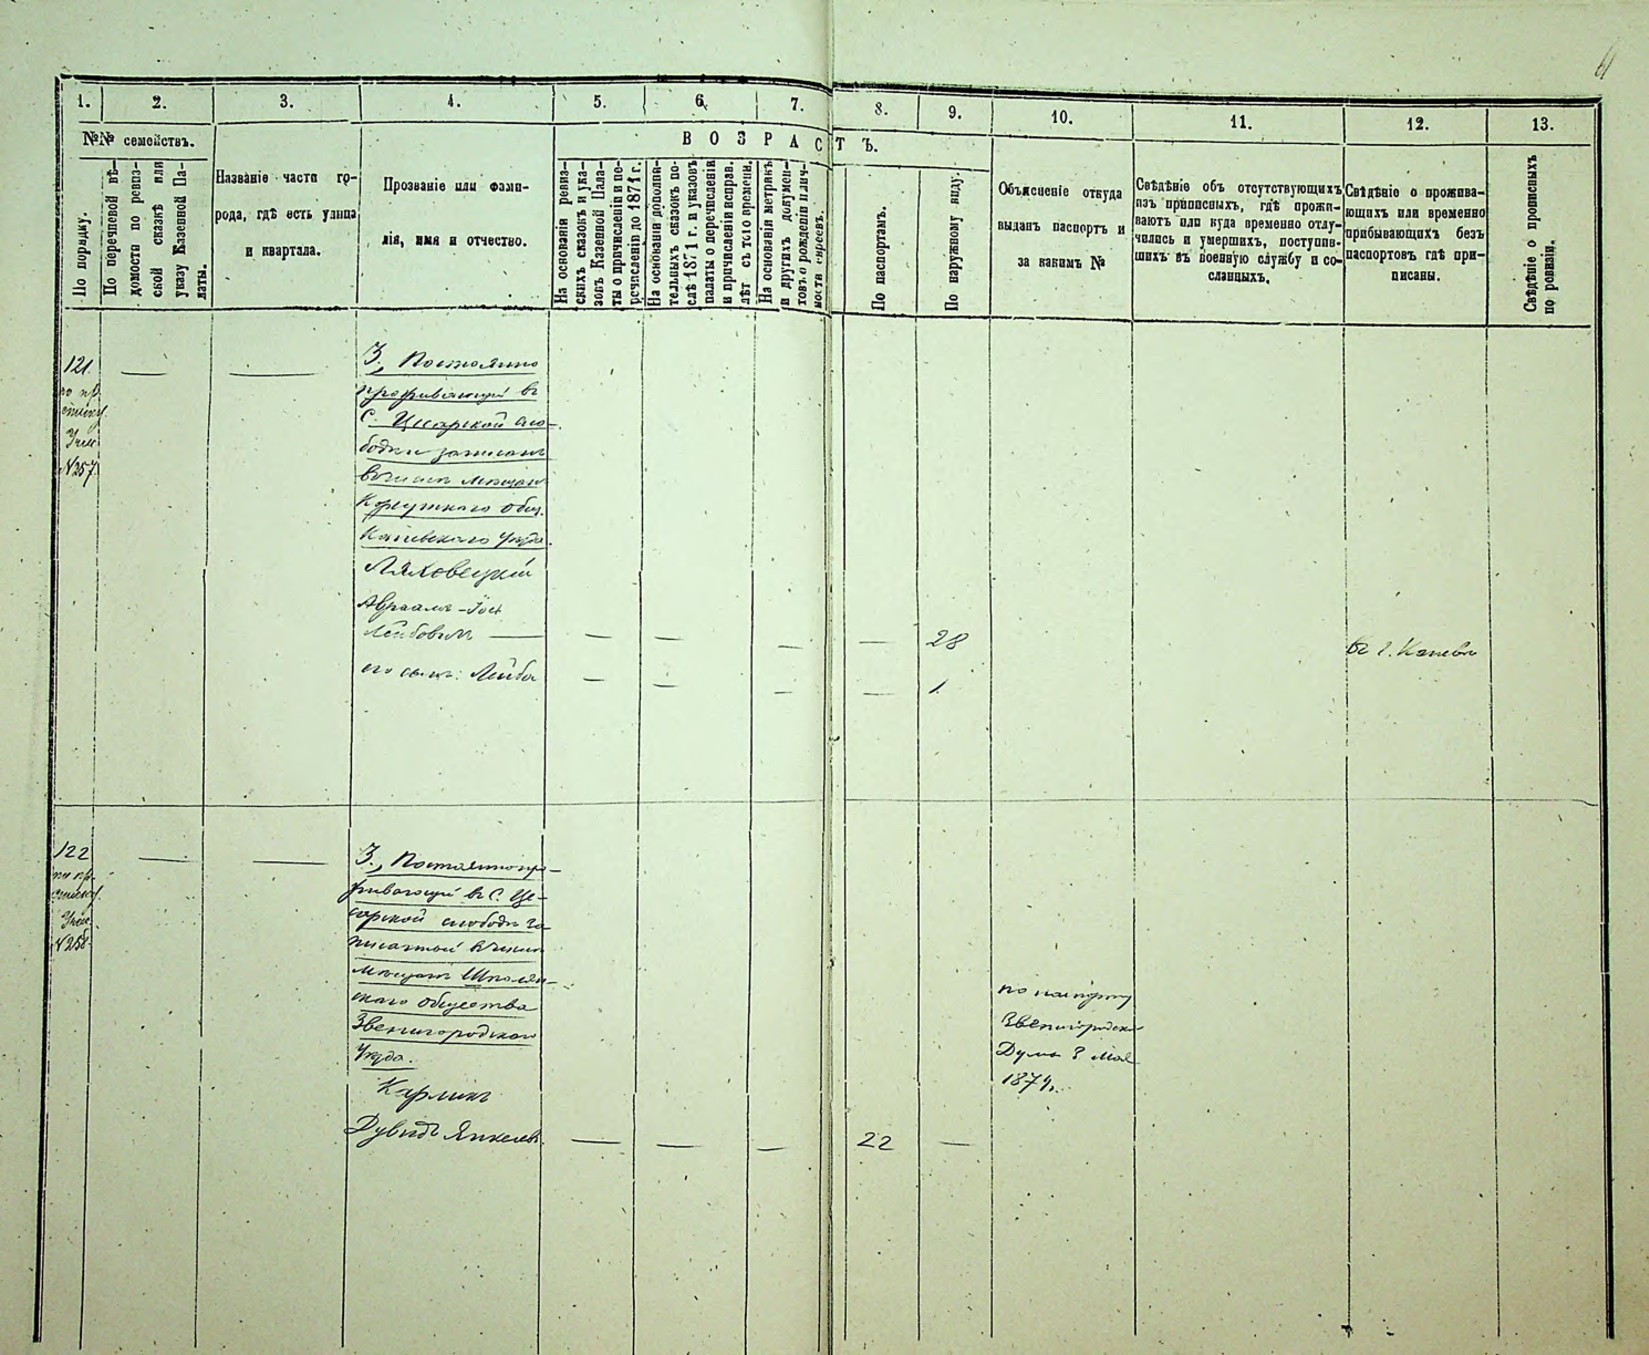 1. 2. 3. 4. 5. 6. 7. 8. 9. 10. 11. 12. 13.
№№ семействъ.
По порядку.
По перечневой вѣ-
домости по ревиз-
ской сказкѣ или
указу Казенной Па-
латы.
Названіе части го-
рода, гдѣ есть улица
и квартала.
Прозваніе или фами-
лія, имя и отчество.
ВОЗРАСТЪ.
На основаніи ревиз-
скихъ сказокъ и ука-
зовъ Казенной Пала-
ты о причисленіи и пе-
речисленіи до 1871 г.
На основаніи дополни-
тельныхъ сказокъ по-
слѣ 1871 г. и указовъ
палаты о перечисленіи
и причисленіи исправ.
лѣт съ того времени.
На основаніи метрикъ
и другихъ докумен-
товъ о рожденіи и лич-
ности евреевъ.
По паспортамъ.
По наружному виду.
Объясненіе откуда
выданъ паспортъ и
за какимъ №
Свѣдѣніе объ отсутствующихъ
изъ приписныхъ, гдѣ прожи-
ваютъ или куда временно отлу-
чились и умершихъ, поступив-
шихъ въ военную службу и со-
сланныхъ.
Свѣдѣніе о прожива-
ющихъ или временно
прибывающихъ безъ
паспортовъ гдѣ при-
писаны.
Свѣдѣніе о прописныхъ
по ревизіи.
121
№257
3., Постоянно
проживающій въ
С. Цесарской сло-
бодки записанъ
мѣщанъ
Корсунскаго общ.
Каневскаго уѣзда.
Ляховецкій
Авраамъ-Іос
Лейбовичъ — — — — — 28
въ г. Каневѣ
его сынъ: Лейба — — — — 1.
122
№258
3., Постоянно про-
живающій въ С. Це-
сарской слободки за
писанный въ числѣ
мѣщанъ Шполян-
скаго общества
Звенигородскаго
уѣзда.
Карлинъ
Дувидъ Янкелев. — — — 22 —
по паспорту
Звенигородской
Думы 8 Мая
1874.